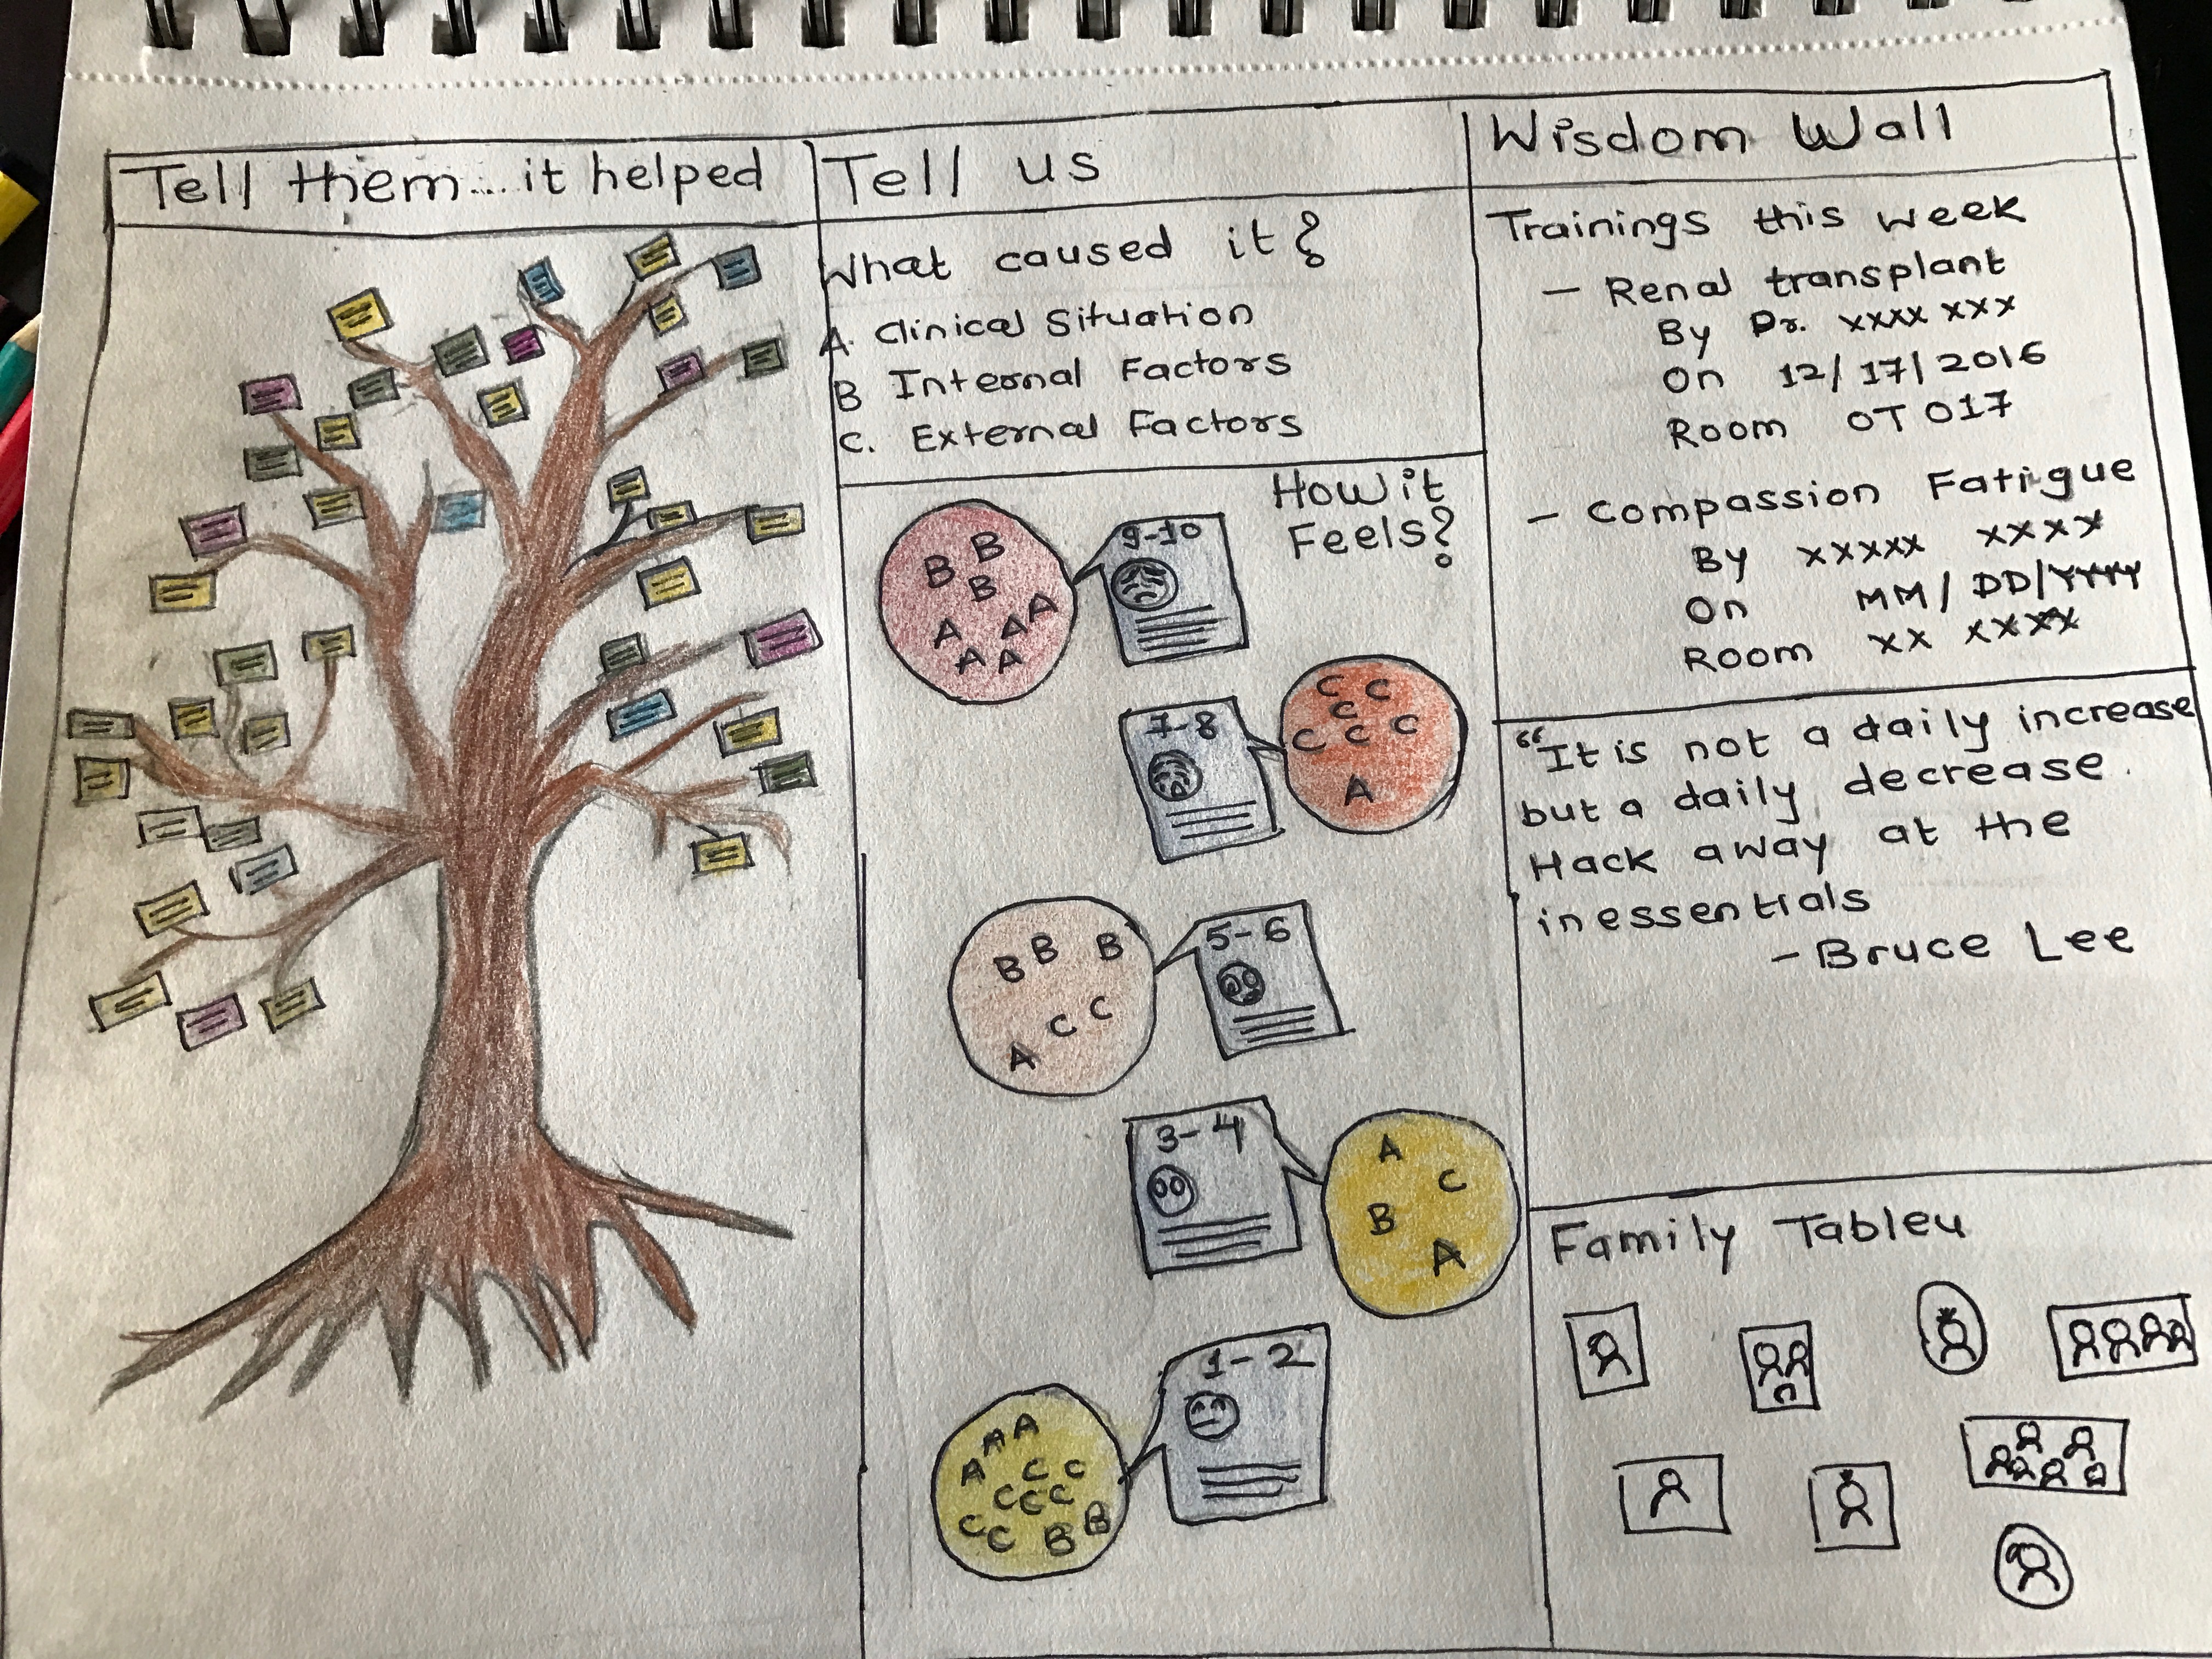 Tell them... it helped
Tell us
What caused it?
A. Clinical Situation
B Internal Factors
C. External Factors
How it
Feels?
B B
B
A A A
A A
9-10
7-8
C C
C
C C C
A
B B B
C C
A
5-6
3-4
A
C
B
A
1-2
A A
A C C
C C C
C C B B
Wisdom Wall
Trainings this week
- Renal transplant
By Dr. xxxx xxx
On 12/17/2016
Room OT 017
- Compassion Fatigue
By xxxxx xxxx
On MM/DD/YYYY
Room xx xxxx
"It is not a daily increase
but a daily decrease.
Hack away at the
inessentials
- Bruce Lee
Family Tableu